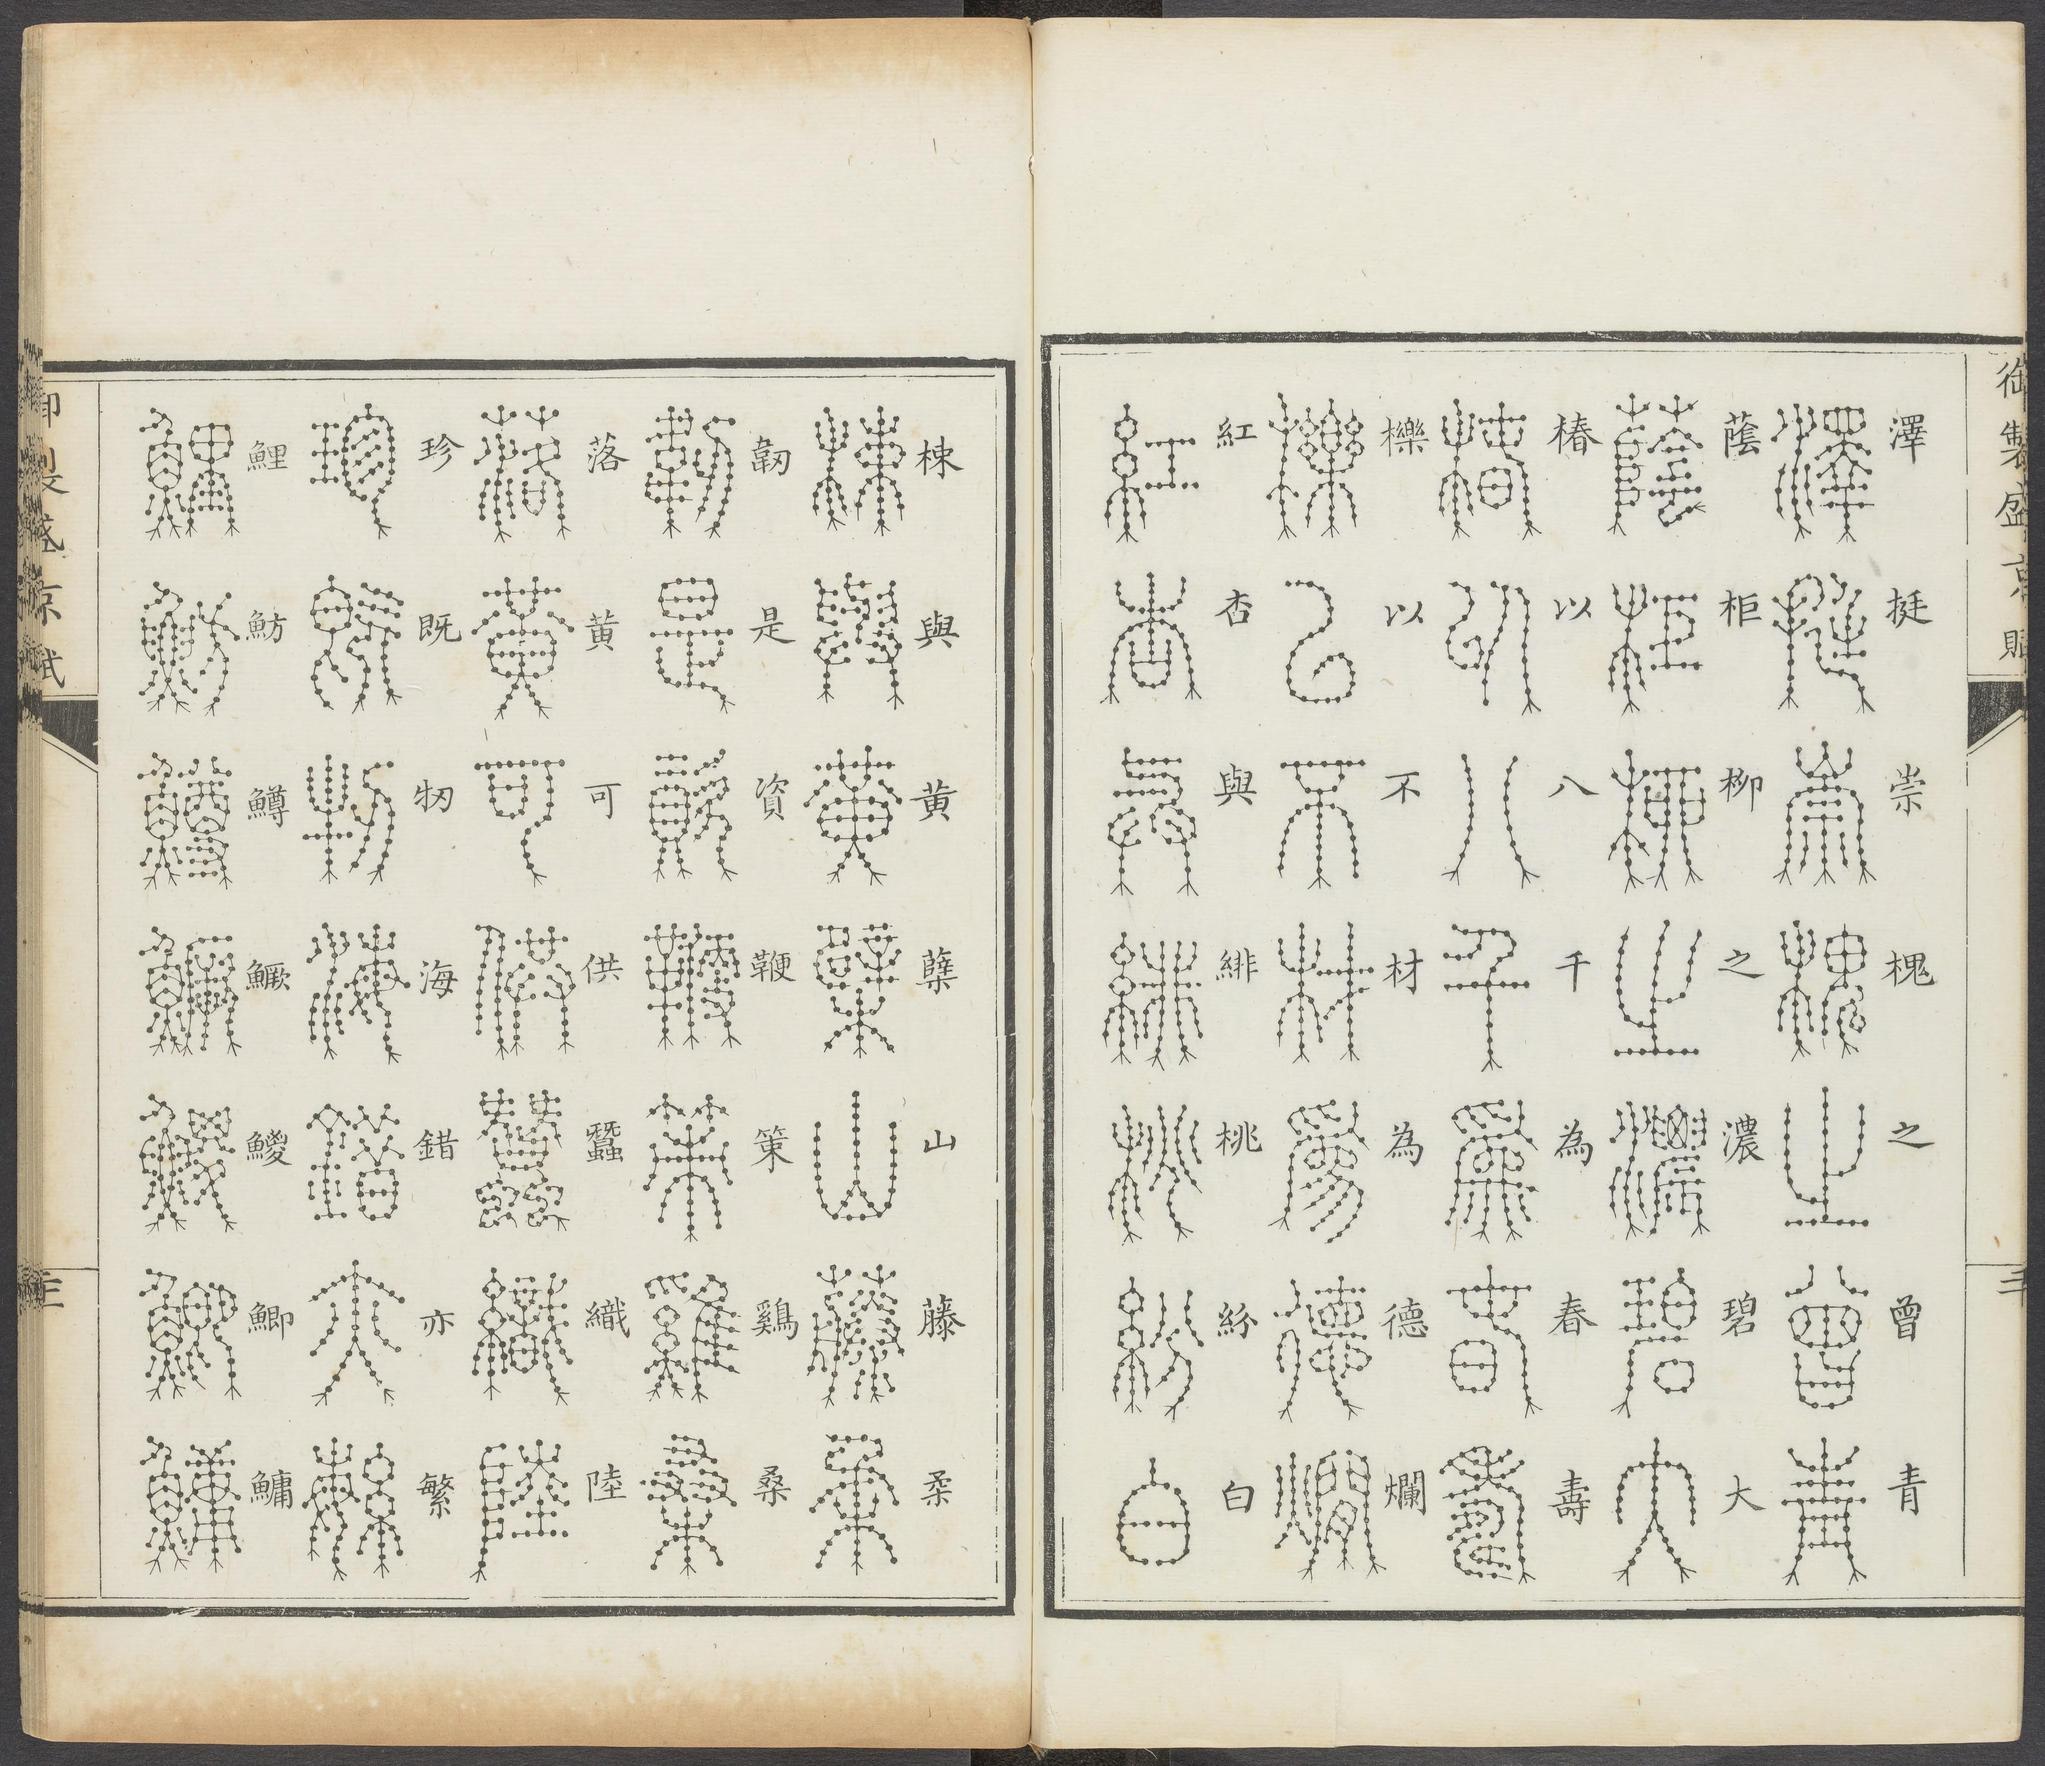 御製盛京賦
澤挺崇槐之曾青
蔭柜柳之濃碧大
椿以八千為春壽
櫟以不材為德爛
紅杏與緋桃紛白
棟與黄蘖山藤柔
韌是資鞭策鷄桑
落黄可供蠶織陸
珍既牣海錯亦繁
鯉魴鱒鱖鯼鯽鱅
御製盛京賦